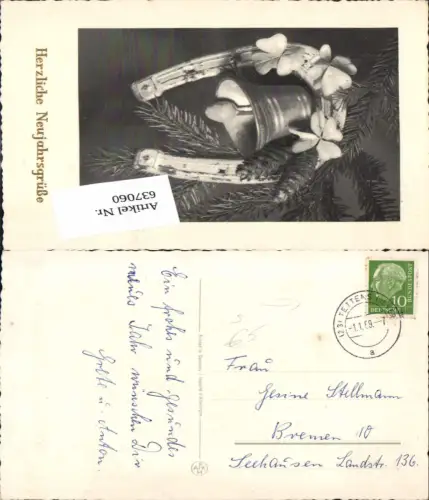 Herzliche Neujahrsgrüße
Artikel Nr.
637060
Ein frohes und gesundes
neues Jahr wünschen Dir
Grete u. Anton.
10
-1.1.59.-7
a
Frau
Gesine Stellmann
Bremen 10
Seehausen Landstr. 136.